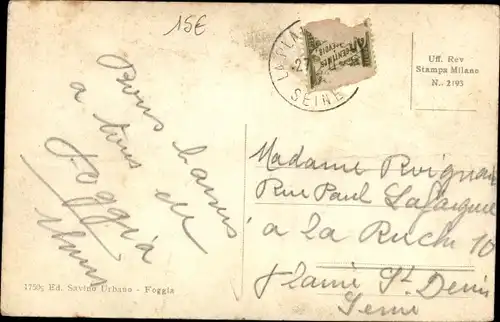 15€
LA PLA
27
SEINE
CENTIMES
Uff. Rev
Stampa Milano
N.. 2193
Bons baisers
à tous de
Foggia
Madame Rvignan
Rue Paul Lafargue
à la Ruche 10
Plaine St Denis
Seine
17505 Ed. Savino Urbano - Foggia